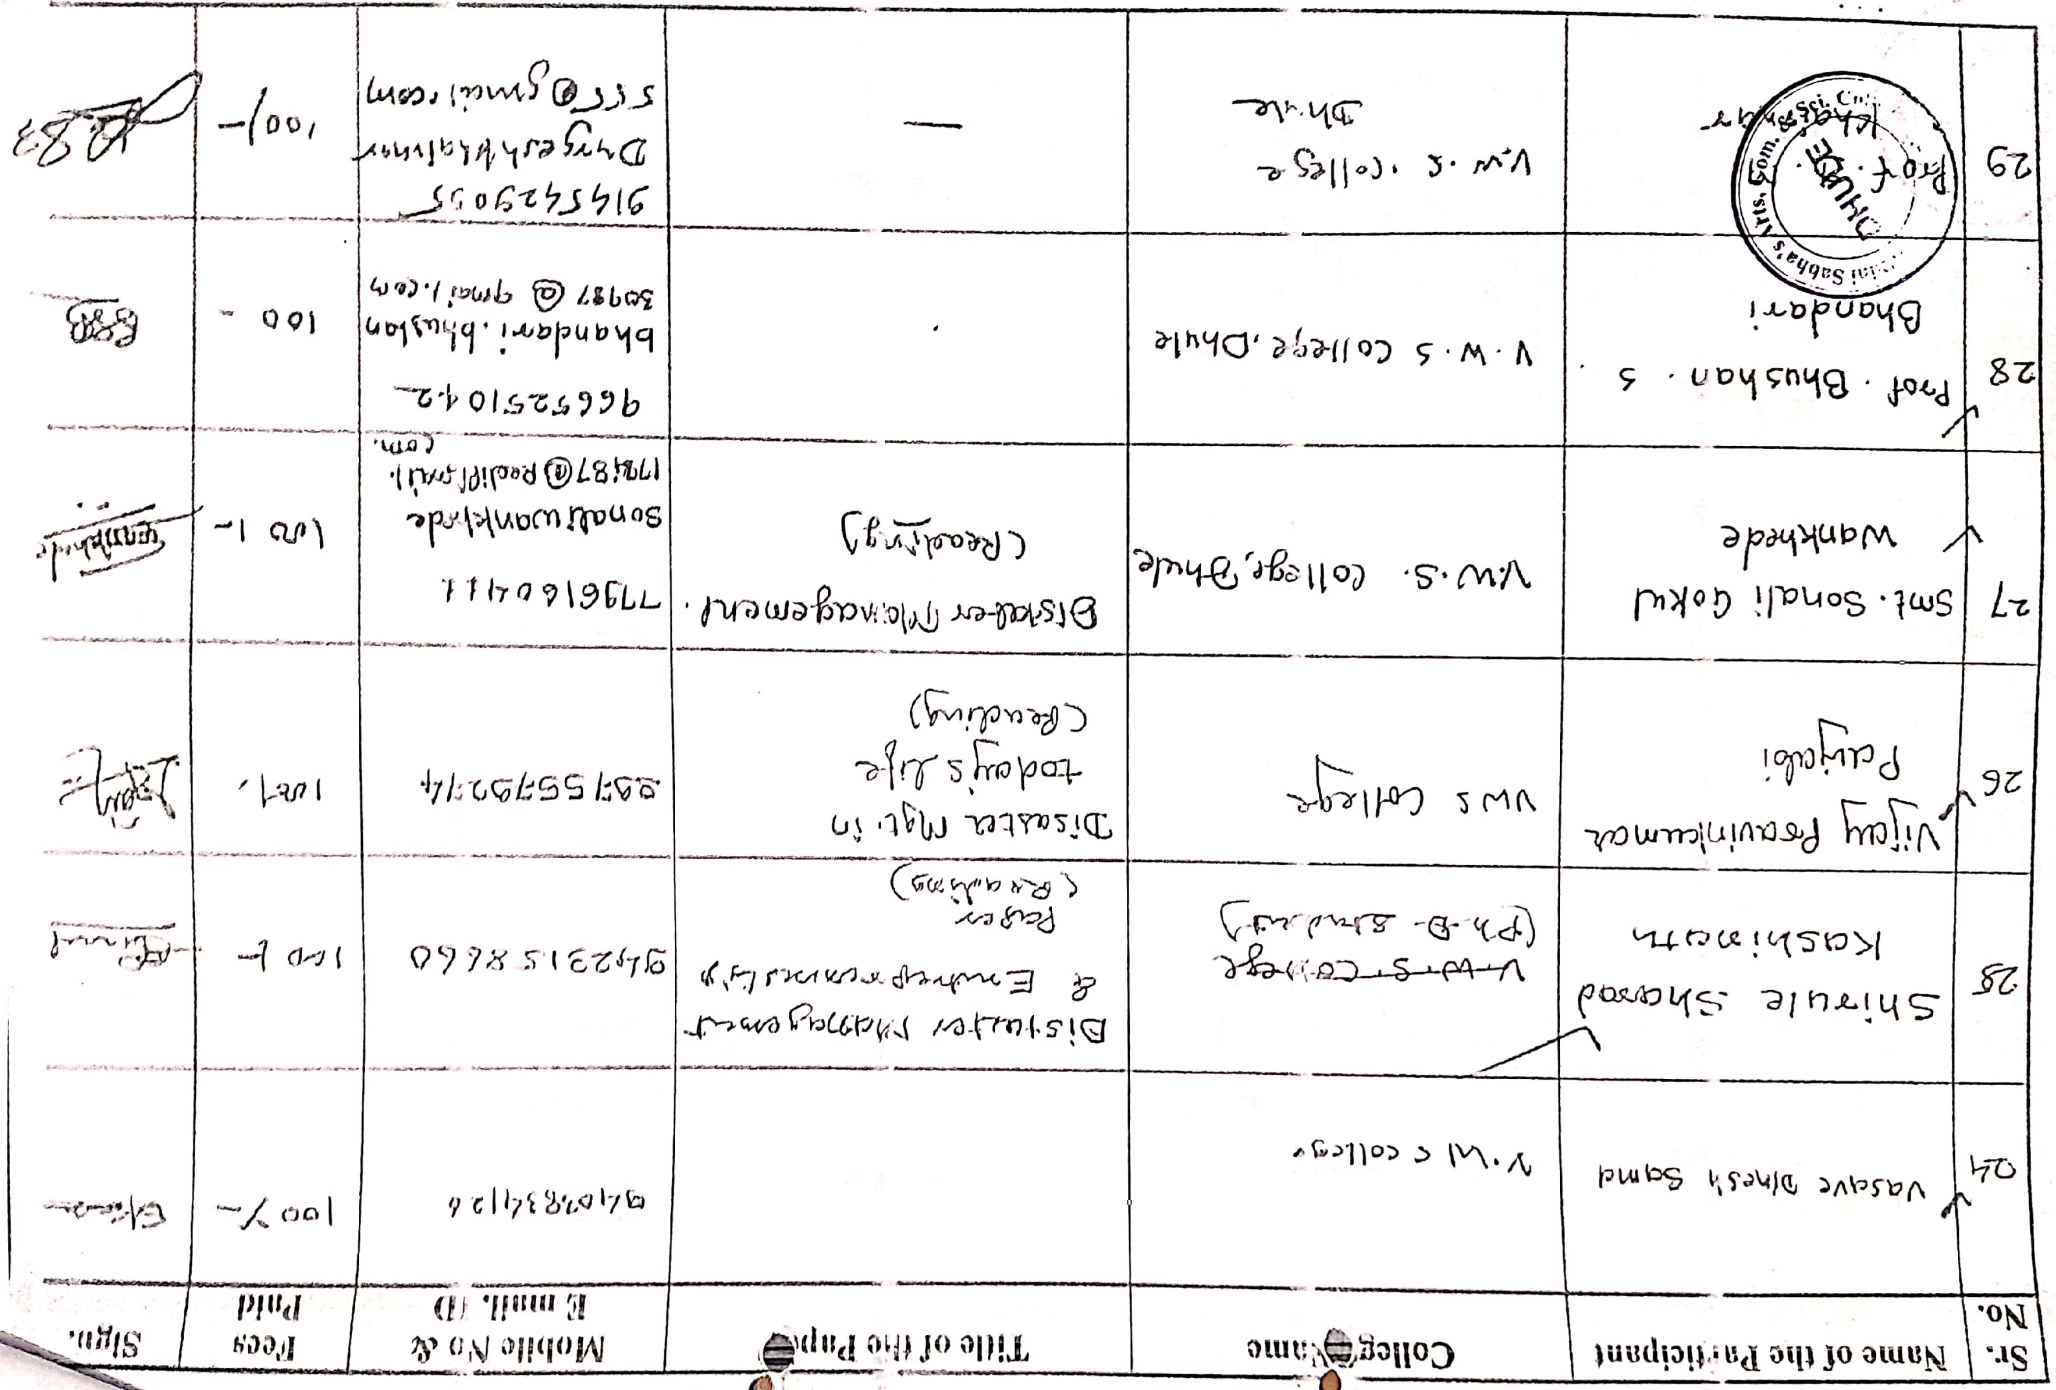 Sr. No.
Name of the Participant
College Name
Title of the Paper
Mobile No & E mail. ID
Fees Paid
Sign.
24
Vasave Dinesh Sama
V.W.S college
100/-
25
Shirule Sharad
Kashinath
V.W.S. College
(Ph.D. student)
Disaster Management
& Entrepreneurship
Paper
(Reading)
9423158660
100/-
26
Vijay Pravinkumar
Panjabi
VWS College
Disaster Mgt. in
today's life
(Reading)
9975579274
100/.
27
Smt. Sonali Gokul
Wankhede
V.W.S. College, Dhule
Disaster Management.
(Reading)
7796160411
Sonaliwankhede
com.
100/-
Wankhede
28
Prof. Bhushan. S.
Bhandari
V.W.S College, Dhule
9665251042
bhandari.bhushan
30987@gmail.com
100 -
29
Prof.
Khairnar
V.W.S. College
Dhule
—
9145429055
Durgeshkhairnar
555@gmail.com
100/-
Sabha's Arts, Com. & Sci. Col
DHULE